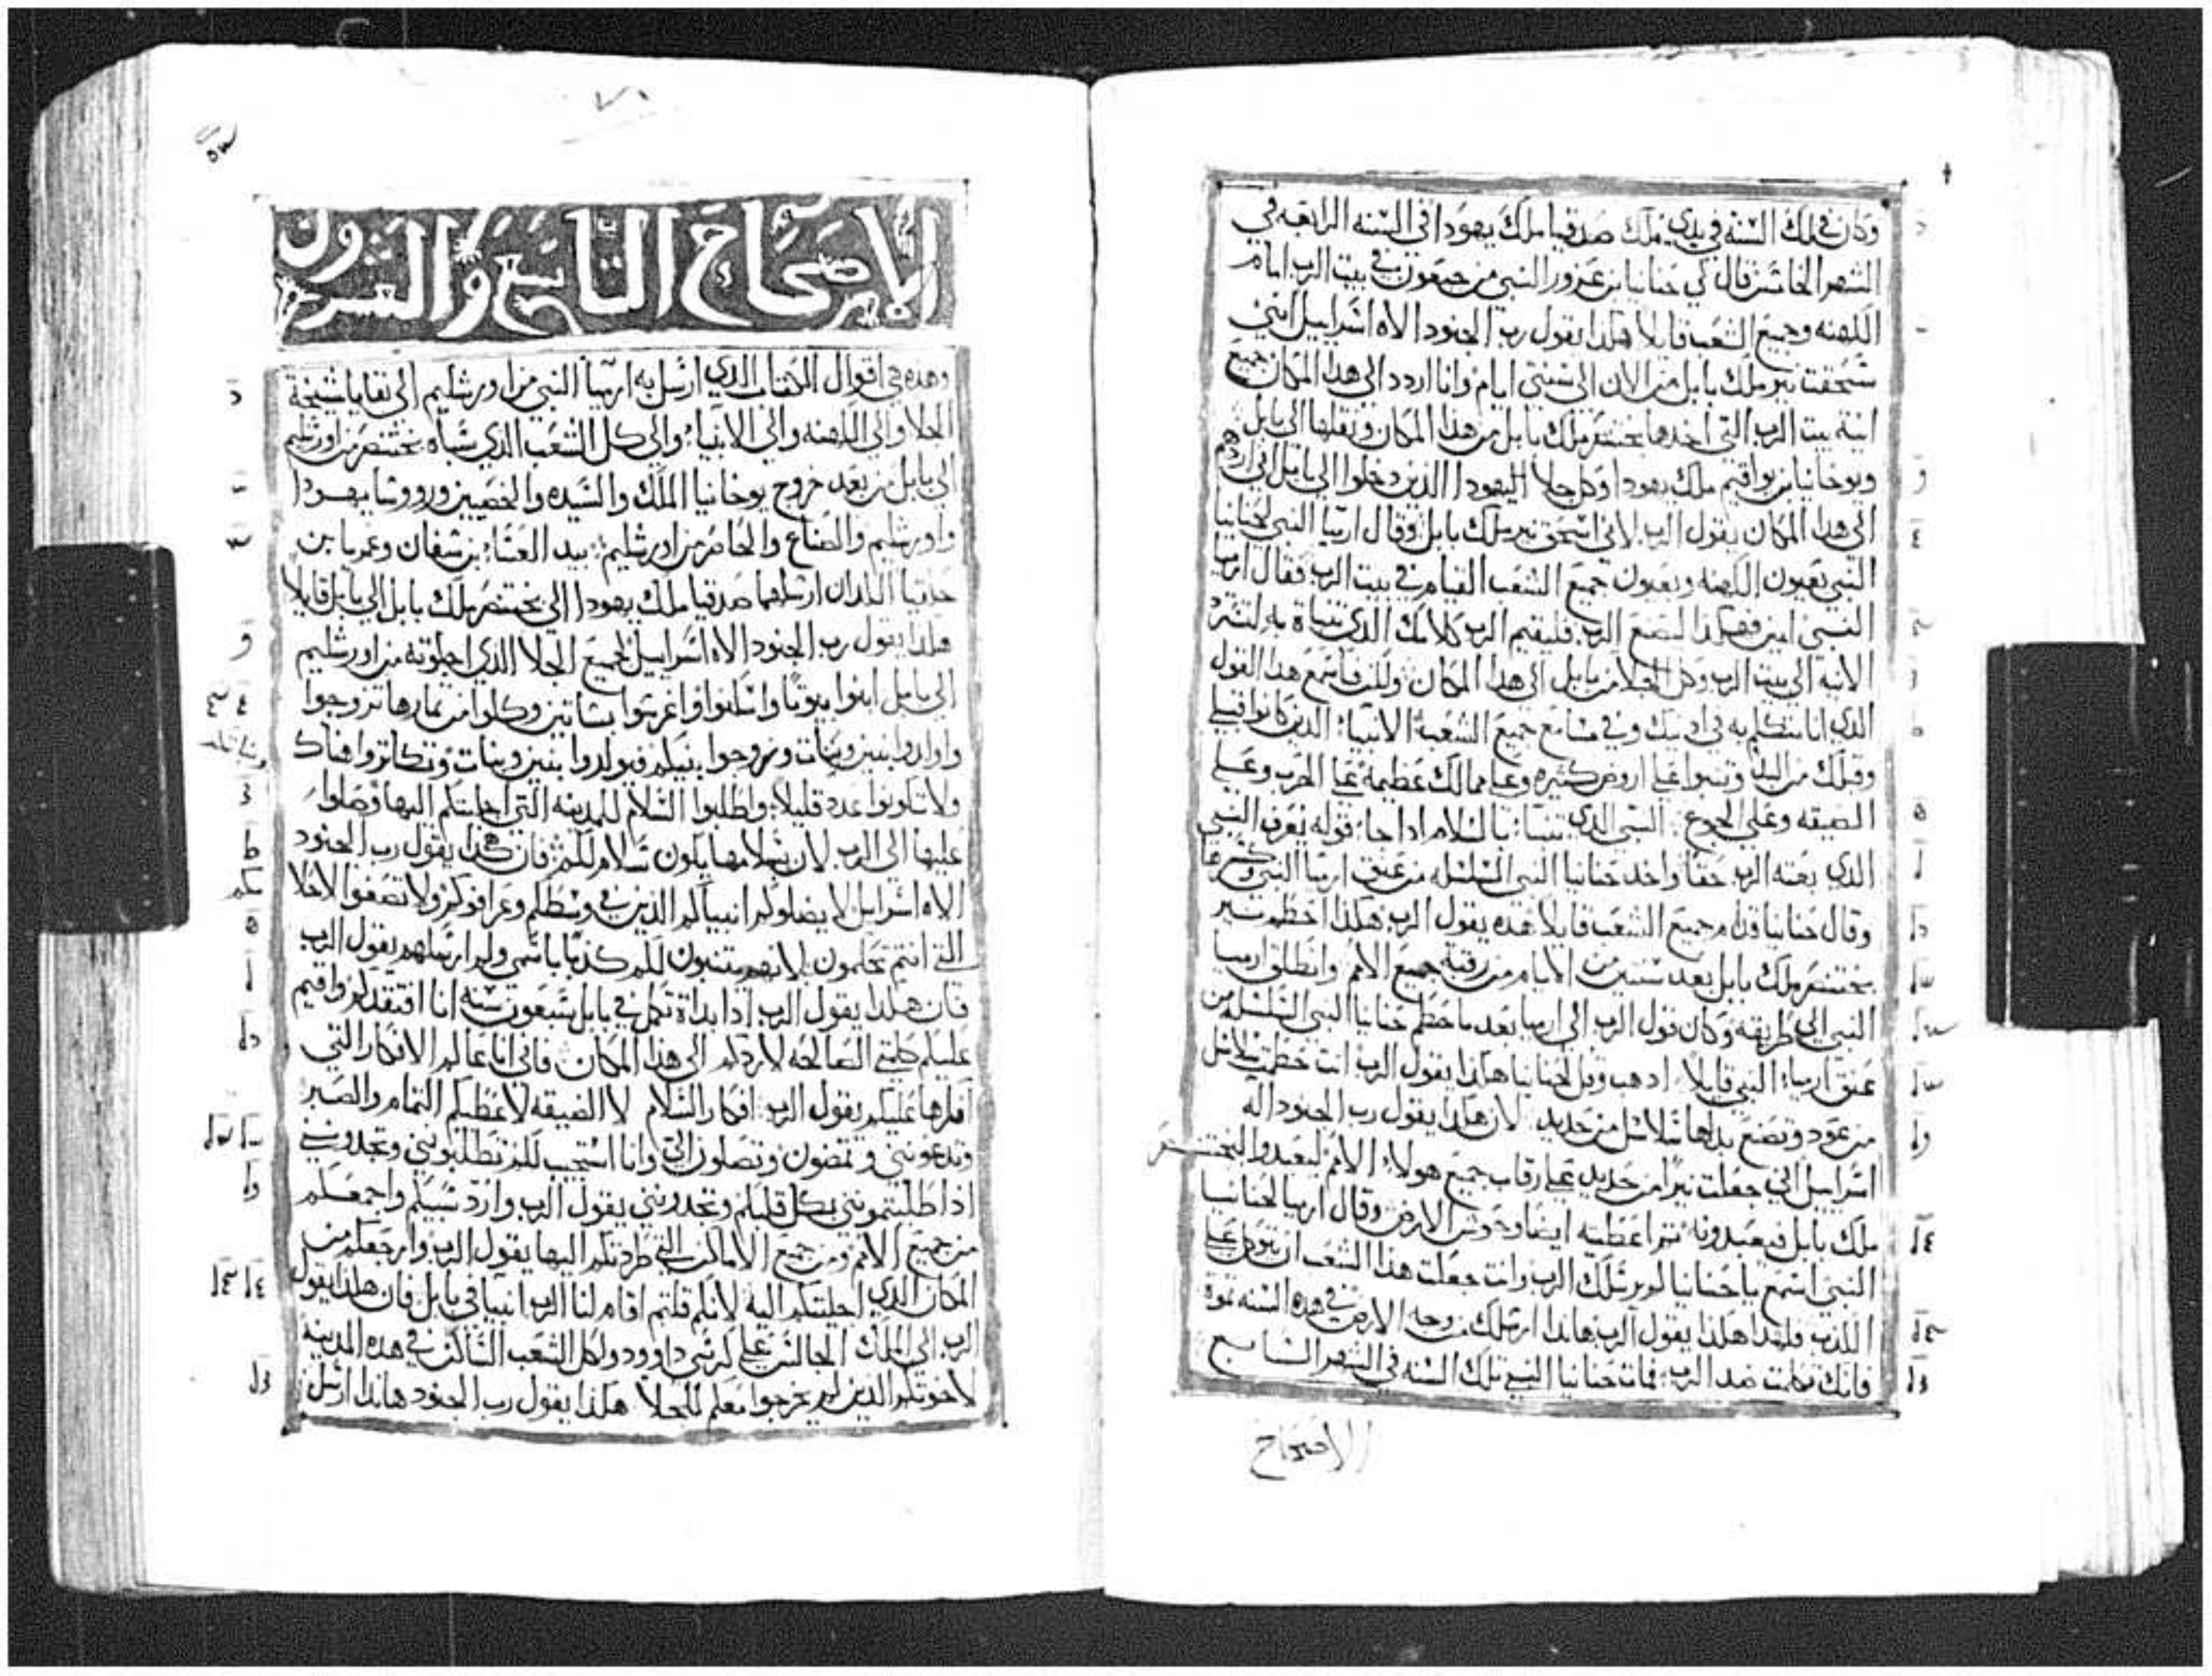 وكان في تلك السنة في بدي ملك صدقيا ملك يهودا في السنه الرابعه في
الشهر الخامس قال لي حنانيا بن عزور النبي من جبعون في بيت الرب امام
الكهنه وجميع الشعب قايلا هكذا يقول رب الجنود الاه اسراييل انني
سحقت نير ملك بابل من الان الي سنتي ايام وانا اردد الي هذا المكان جميع
انية بيت الرب التي اخدها بختنصر ملك بابل من هذا المكان ونقلها الي بابل
ويوخانيا بن يواقيم ملك يهودا وكل جلا اليهودا الذين دخلوا الي بابل اني اردهم
الي هذا المكان يقول الرب لاني اسحق نير ملك بابل وقال ارميا النبي لحنانيا
النبي بعيون الكهنه وبعيون جميع الشعب القيام في بيت الرب فقال ارميا
النبي امين فهكذا ليصنع الرب فليقيم الرب كلامك الذي تنباة به لترد
الانيه الي بيت الرب وكل الجلا من بابل الي هذا المكان ولكن فاسمع هذا القول
الذي انا متكلم به في ادنيك وفي مسامع جميع الشعب الانبيا الذين كانوا قبلي
وقبلك من البد وتنبوا علي اروض كثيره وعلي ممالك عظيمة علي الحرب وعلي
الضيقه وعلي الجوع النبي الذي تنبا بالسلام ادا جا قوله يعرف النبي
الذي بعته الرب حقا واخد حنانيا النبي السلسله من عنق ارميا النبي وكسرها
وقال حنانيا قدام جميع الشعب قايلا هذه يقول الرب هكذا احطم نير
بختنصر ملك بابل بعد سنتين من الايام من رقبة جميع الامم وانطلق ارميا
النبي الي طريقه وكان قول الرب الي ارميا بعد ما حطم حنانيا النبي السلسله من
عنق ارميا النبي قايلا ادهب وقل لحنانيا هكذا يقول الرب انت حطمت سلاسل
من عود وتصنع بدلها سلاسل من حديد لان هكذا يقول رب الجنود اله
اسراييل اني جعلت نيرا من حديد علي رقاب جميع هولا الامم ليعبدوا لبختنصر
ملك بابل فيعبدونه ثم اعطيته ايضا وحوش الارض وقال ارميا لحنانيا
النبي اسمع يا حنانيا لم يرسلك الرب وانت جعلت هذا الشعب ان يتوكل علي
الكذب فلهذا هكذا يقول الرب هاندا ارسلك من وجه الارض في هذه السنه تموة
فانك تكلمت ضد الرب فمات حنانيا النبي تلك السنه في الشهر السابع
الاصحاح
٧١
الاصحاح التاسع والعشرون
وهذه هي اقوال الكتاب الذي ارسل به ارميا النبي من اورشليم الي بقايا شيخة
الجلا والي الكهنه والي الانبيا والي كل الشعب الذي سباه بختنصر من اورشليم
الي بابل من بعد خروج يوخانيا الملك والسيده والخصيين وروسا يهودا
واورشليم والصناع والحاصر من اورشليم بيد العسا بن شفان وغمريا بن
حلقيا اللذان ارسلهما صدقيا ملك يهودا الي بختنصر ملك بابل الي بابل قايلا
هكذا يقول رب الجنود الاه اسراييل لجميع الجلا الذي اجلوته من اورشليم
الي بابل ابنوا بيوتا واسكنوا واغرسوا بساتين وكلوا من ثمارها تزوجوا
واولدوا بنين وبنات وزوجوا بنيكم فيولدوا بنين وبنات وتكاثروا هناك
ولا تكونوا عدد قليلا واطلبوا السلام للمدينه التي اجليتكم اليها وصلوا
عليها الي الرب لان بسلامها يكون سلام لكم فان هكذا يقول رب الجنود
الاه اسراييل لا يضلوكم انبياكم الذين في وسطكم وعرافوكم ولا تصغوا لاحلا
مكم
التي انتم تحلمون لانهم يتنبون لكم كذبا باسمي ولم ارسلهم يقول الرب
فان هكذا يقول الرب ادا بداة تكمل في بابل سبعون سنه انا افتقدكم واقيم
عليكم كلمتي الصالحه لاردكم الي هذا المكان فاني انا عالم الافكار التي
افكرها عليكم يقول الرب افكار السلام لا الضيقه لاعطيكم التمام والصبر
وتدعونني وتمضون وتصلون الي وانا استجيب لكم تطلبونني وتجدونني
ادا طلبتمونني بكل قلبكم وتجدونني يقول الرب وارد سبيكم واجمعكم
من جميع الامم ومن جميع الاماكن التي طردتكم اليها يقول الرب وارجعكم من
المكان الذي اجليتكم اليه لانكم قلتم اقام لنا الرب انبيا في بابل فان هكذا يقول
الرب الي الملك الجالس علي كرسي داوود ولكل الشعب الساكن في هذه المدينه
لاخوتكم الذين لم يخرجوا معكم للجلا هكذا يقول رب الجنود هاندا ارسل